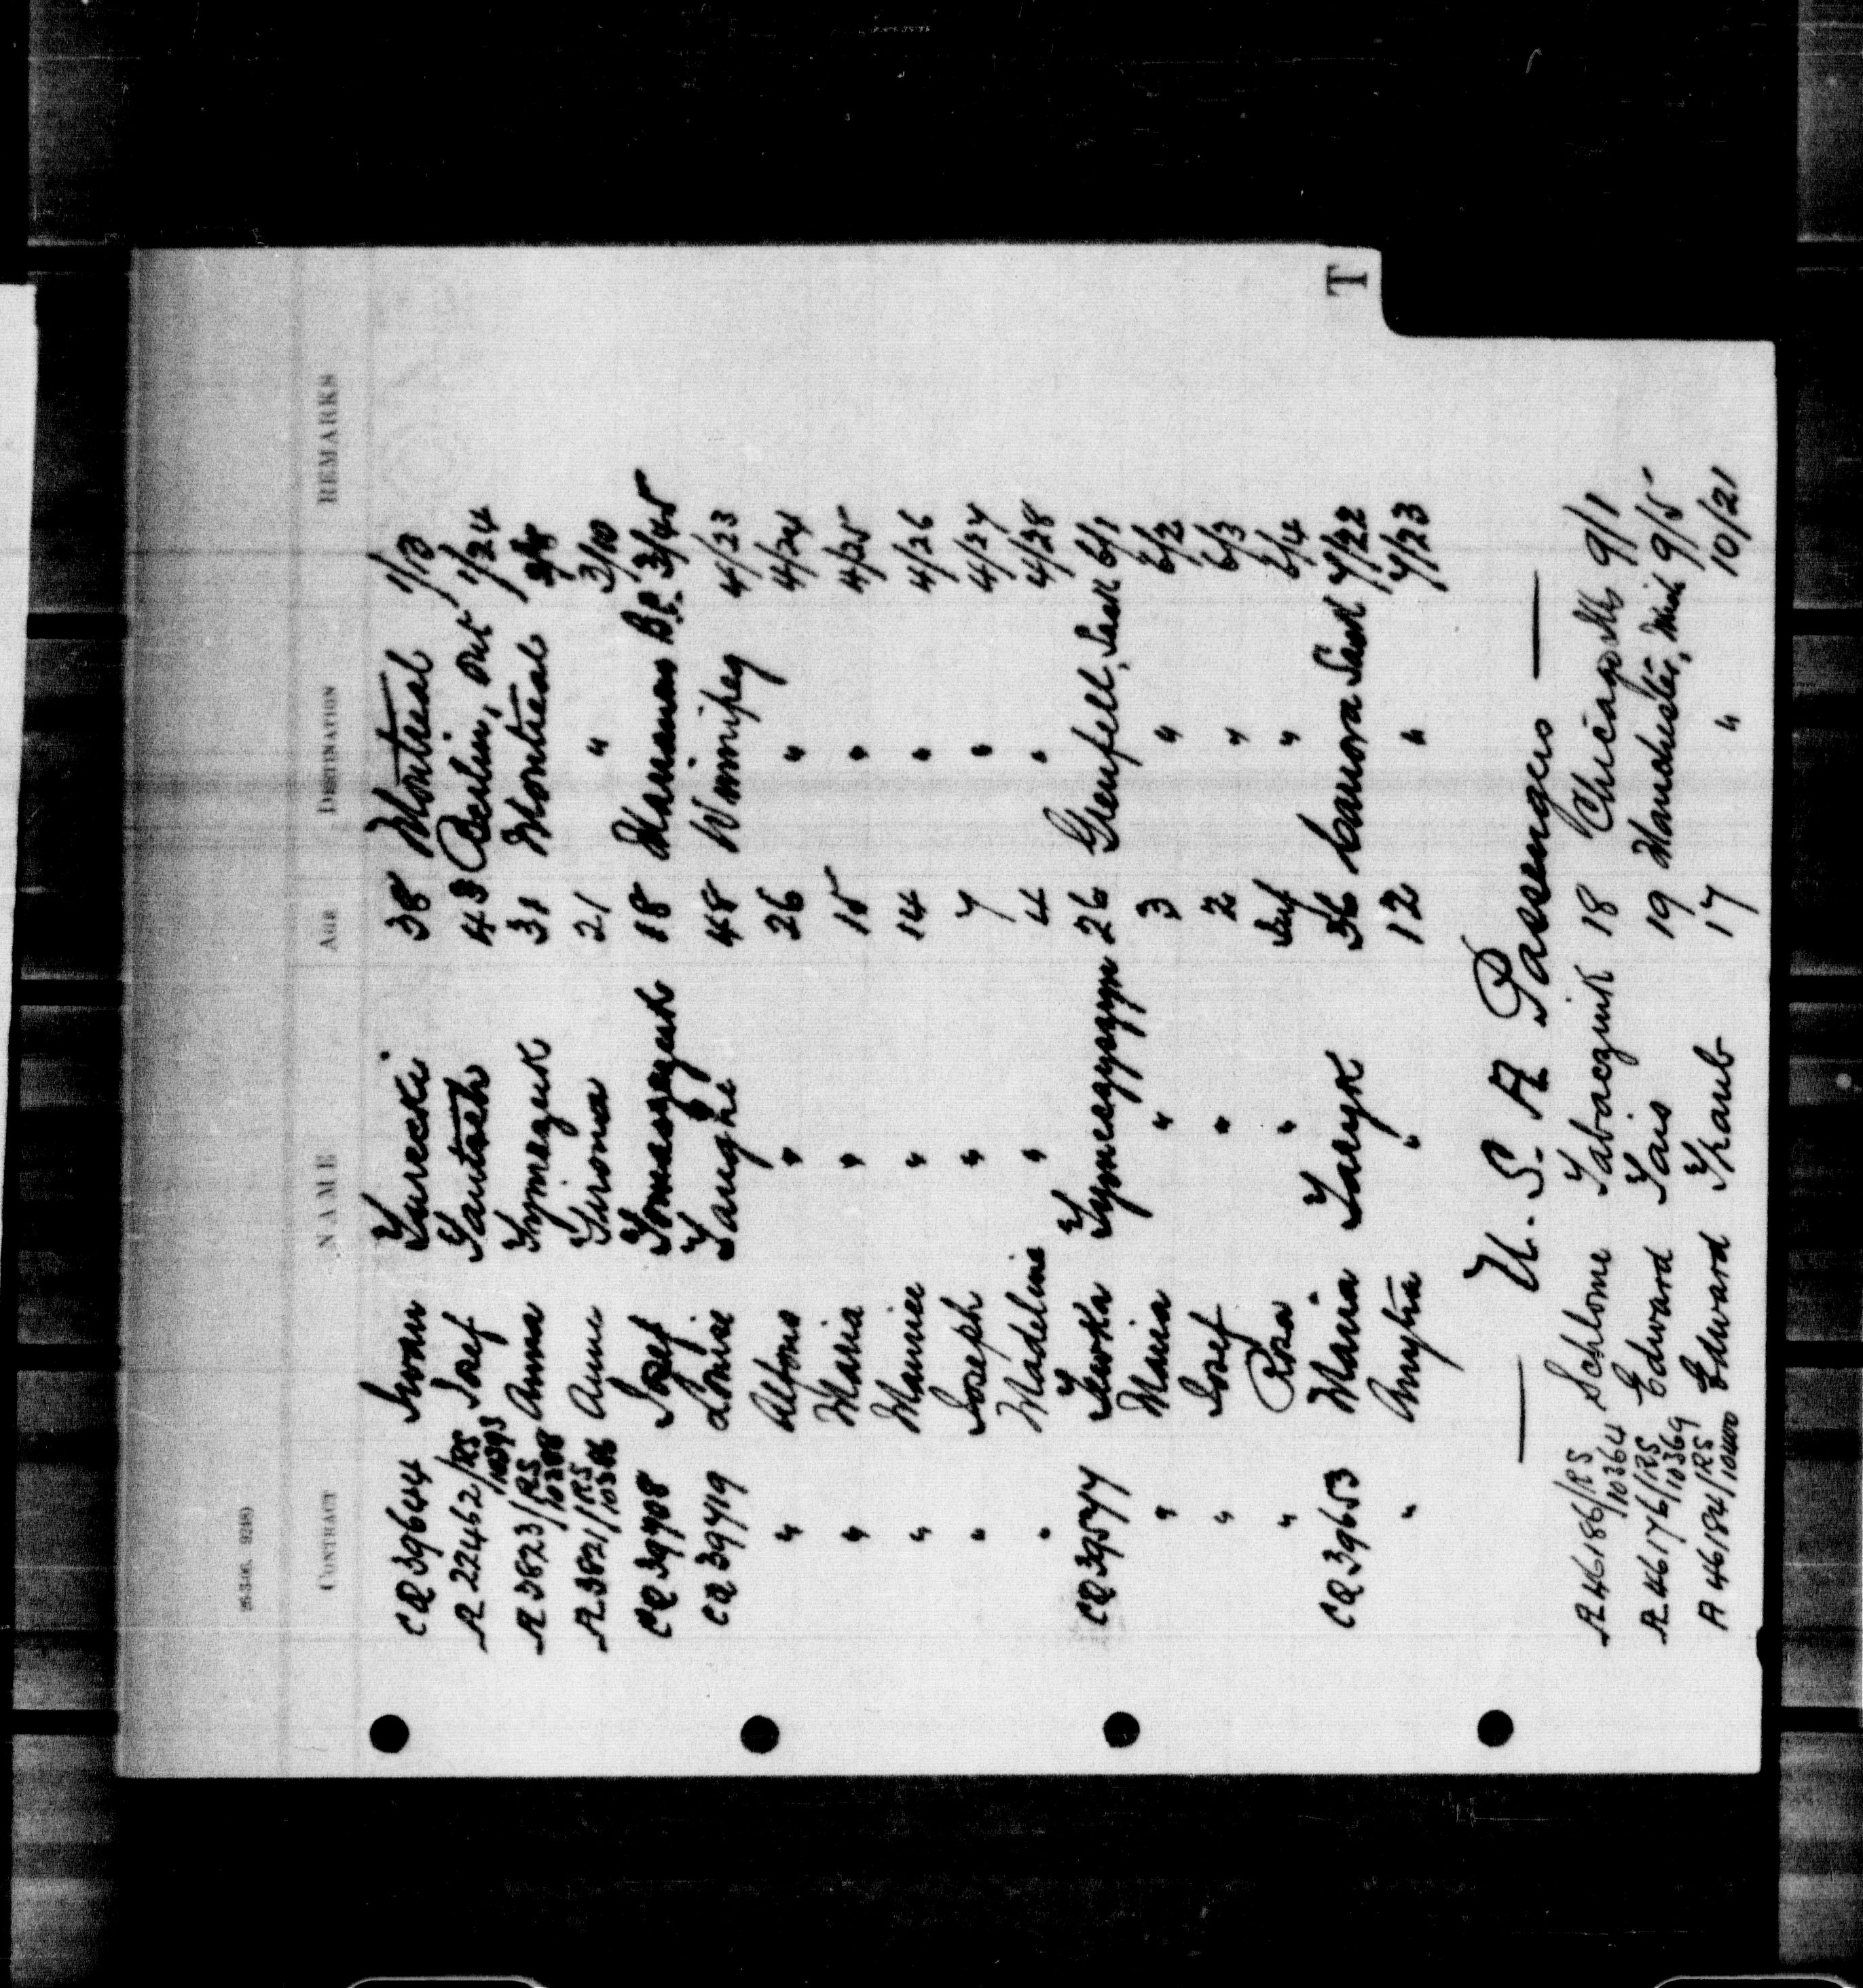 26-3-06. 9248)
CONTRACT NAME AGE DESTINATION REMARKS
CQ 39644 Iwan Turecki 38 Montreal 1/3
A 22462/RS 10393 Josef Tautosch 43 Berlin, Ont 1/24
A 3823/RS Anna Tymczuk 31 Montreal
A 3821/RS Anne Turona 21 " 3/10
CQ 39708 Josef Tomaszczuk 18 3/45
CQ 39719 Louise Taughe 48 Winnipeg 4/23
" Alfons " 26 " 4/24
" Maria " 15 " 4/25
" Maurice " 14 " 4/26
" Joseph " 7 " 4/27
" Madeline " 4 " 4/28
CQ 39577 Tewka 26 Grenfell, Sask 6/1
" Maria " 3 " 6/2
" Josef " 2 " 6/3
" Rosa " Inf " 6/4
CQ 39653 Maria Taryk 36 Canora Sask 7/22
" Anytia " 12 " 7/23
— U. S. A Passengers —
A 46186/RS 10364 Schlome Tabacznik 18 Chicago Ills 9/1
A 46176/RS 10369 Edward Tais 19 Manchester, Mich 9/5
A 46184/RS Edward Traub 17 " 10/21
T